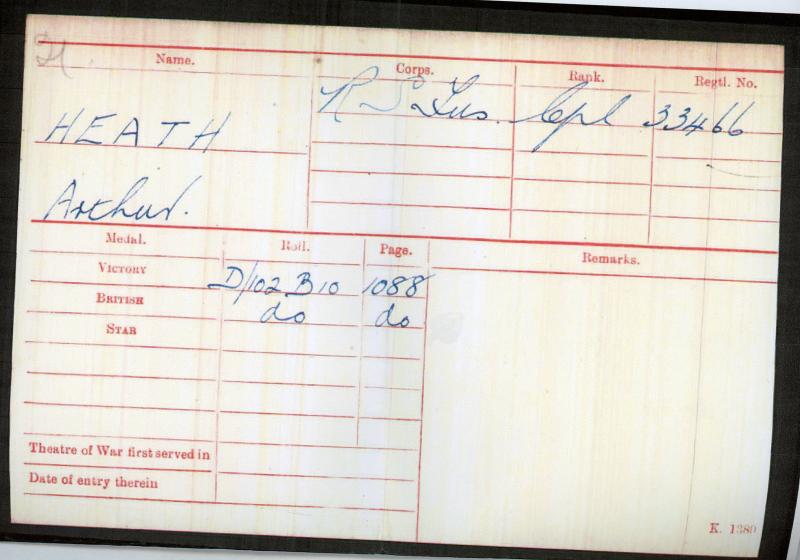 H.
Name. Corps. Rank. Regtl. No.
HEATH R Sc Fus. Cpl 33466
Arthur.
Medal. Roll. Page. Remarks.
VICTORY D/102 B10 1088
BRITISH do do
STAR
Theatre of War first served in
Date of entry therein
K. 1380